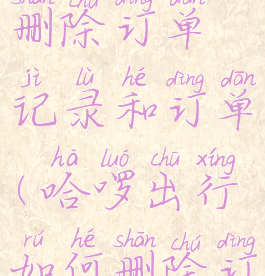 shān chú dìng dān
删除订单
jì lù hé dìng dān
记录和订单
hā luó chū xíng
(哈啰出行
rú hé shān chú dìng
如何删除订